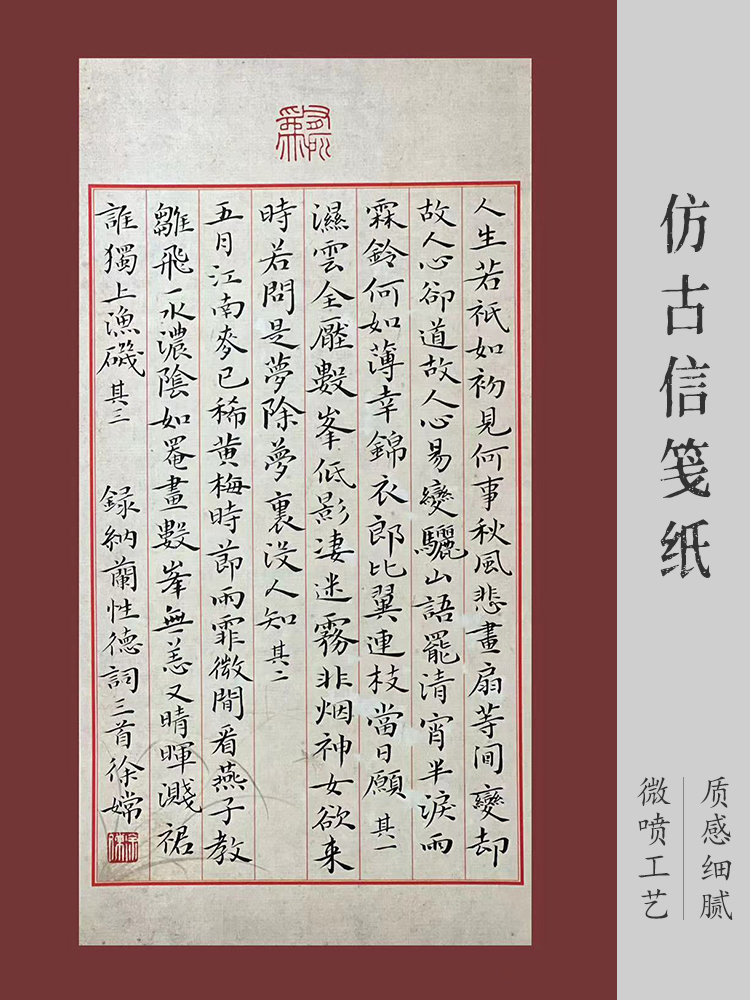 仿古信笺纸
质感细腻
微喷工艺
人生若祇如初見何事秋風悲畫扇等閒變却
故人心卻道故人心易變驪山語罷清宵半淚雨
霖鈴何如薄幸錦衣郎比翼連枝當日願 其一
濕雲全壓數峯低影淒迷霧非烟神女欲来
時若問是夢除夢裏没人知 其二
五月江南麥已稀黄梅時節雨霏微閒看燕子教
雛飛一水濃陰如罨畫數峯無恙又晴暉濺裙
誰獨上漁磯 其三 録納蘭性德詞三首徐嫦